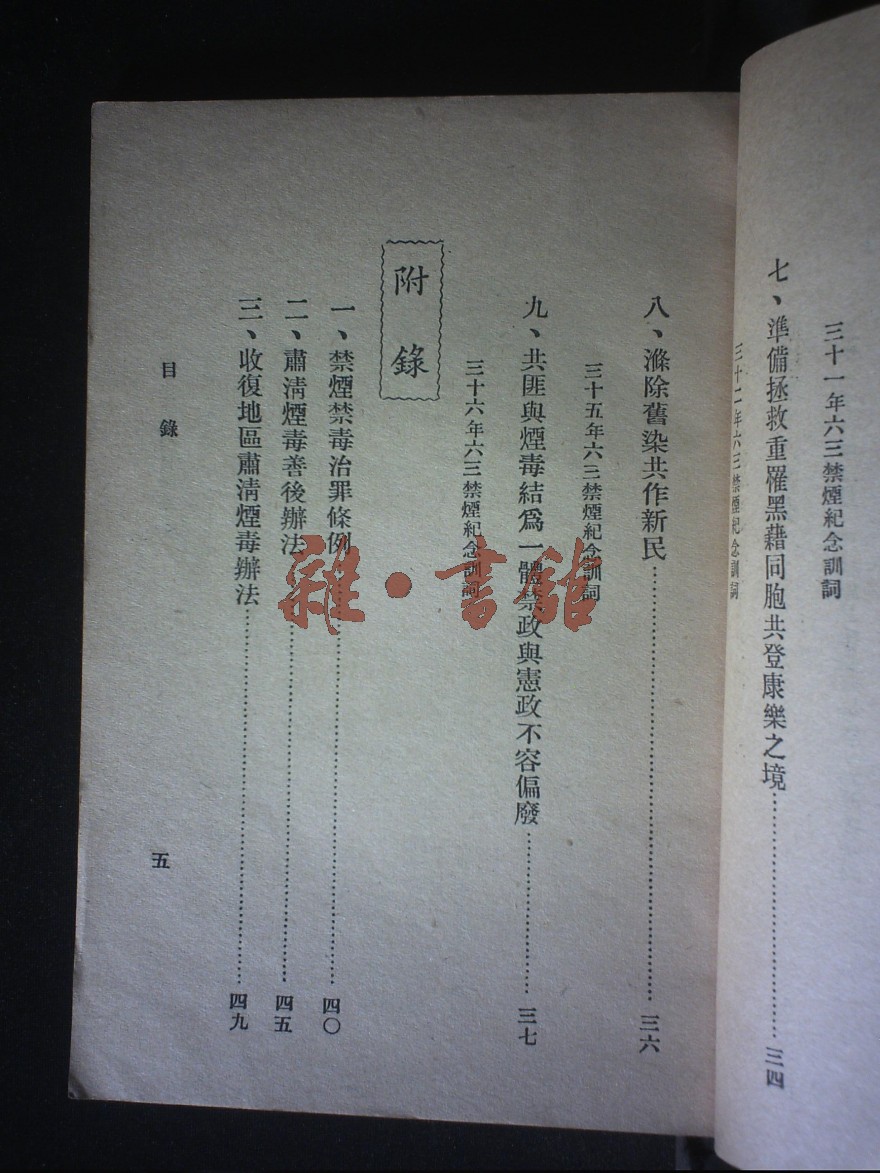 三十一年六三禁煙紀念訓詞
七、準備拯救重罹黑藉同胞共登康樂之境…………三四
三十二年六三禁煙紀念訓詞
八、滌除舊染共作新民…………三六
三十五年六三禁煙紀念訓詞
九、共匪與煙毒結爲一體禁政與憲政不容偏廢…………三七
三十六年六三禁煙紀念訓詞
附錄
一、禁煙禁毒治罪條例…………四〇
二、肅淸煙毒善後辦法…………四五
三、收復地區肅淸煙毒辦法…………四九
目錄
五
雜·書館